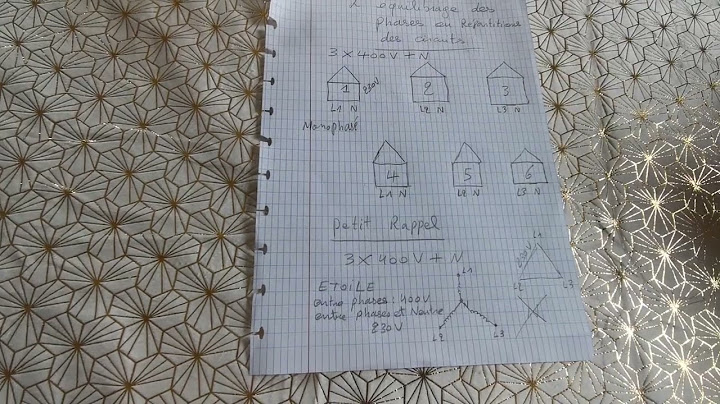 équilibrage des
phases ou Répartitions
des circuits
3 X 400 V + N
1 230V 2 3
L1 N L2 N L3 N
Monophasé
4 5 6
L1 N L2 N L3 N
Petit Rappel
3 X 400 V + N
L1 L1
ETOILE 230V
entre phases : 400V L2 L3
entre phases et Neutre N
230V L2 L3